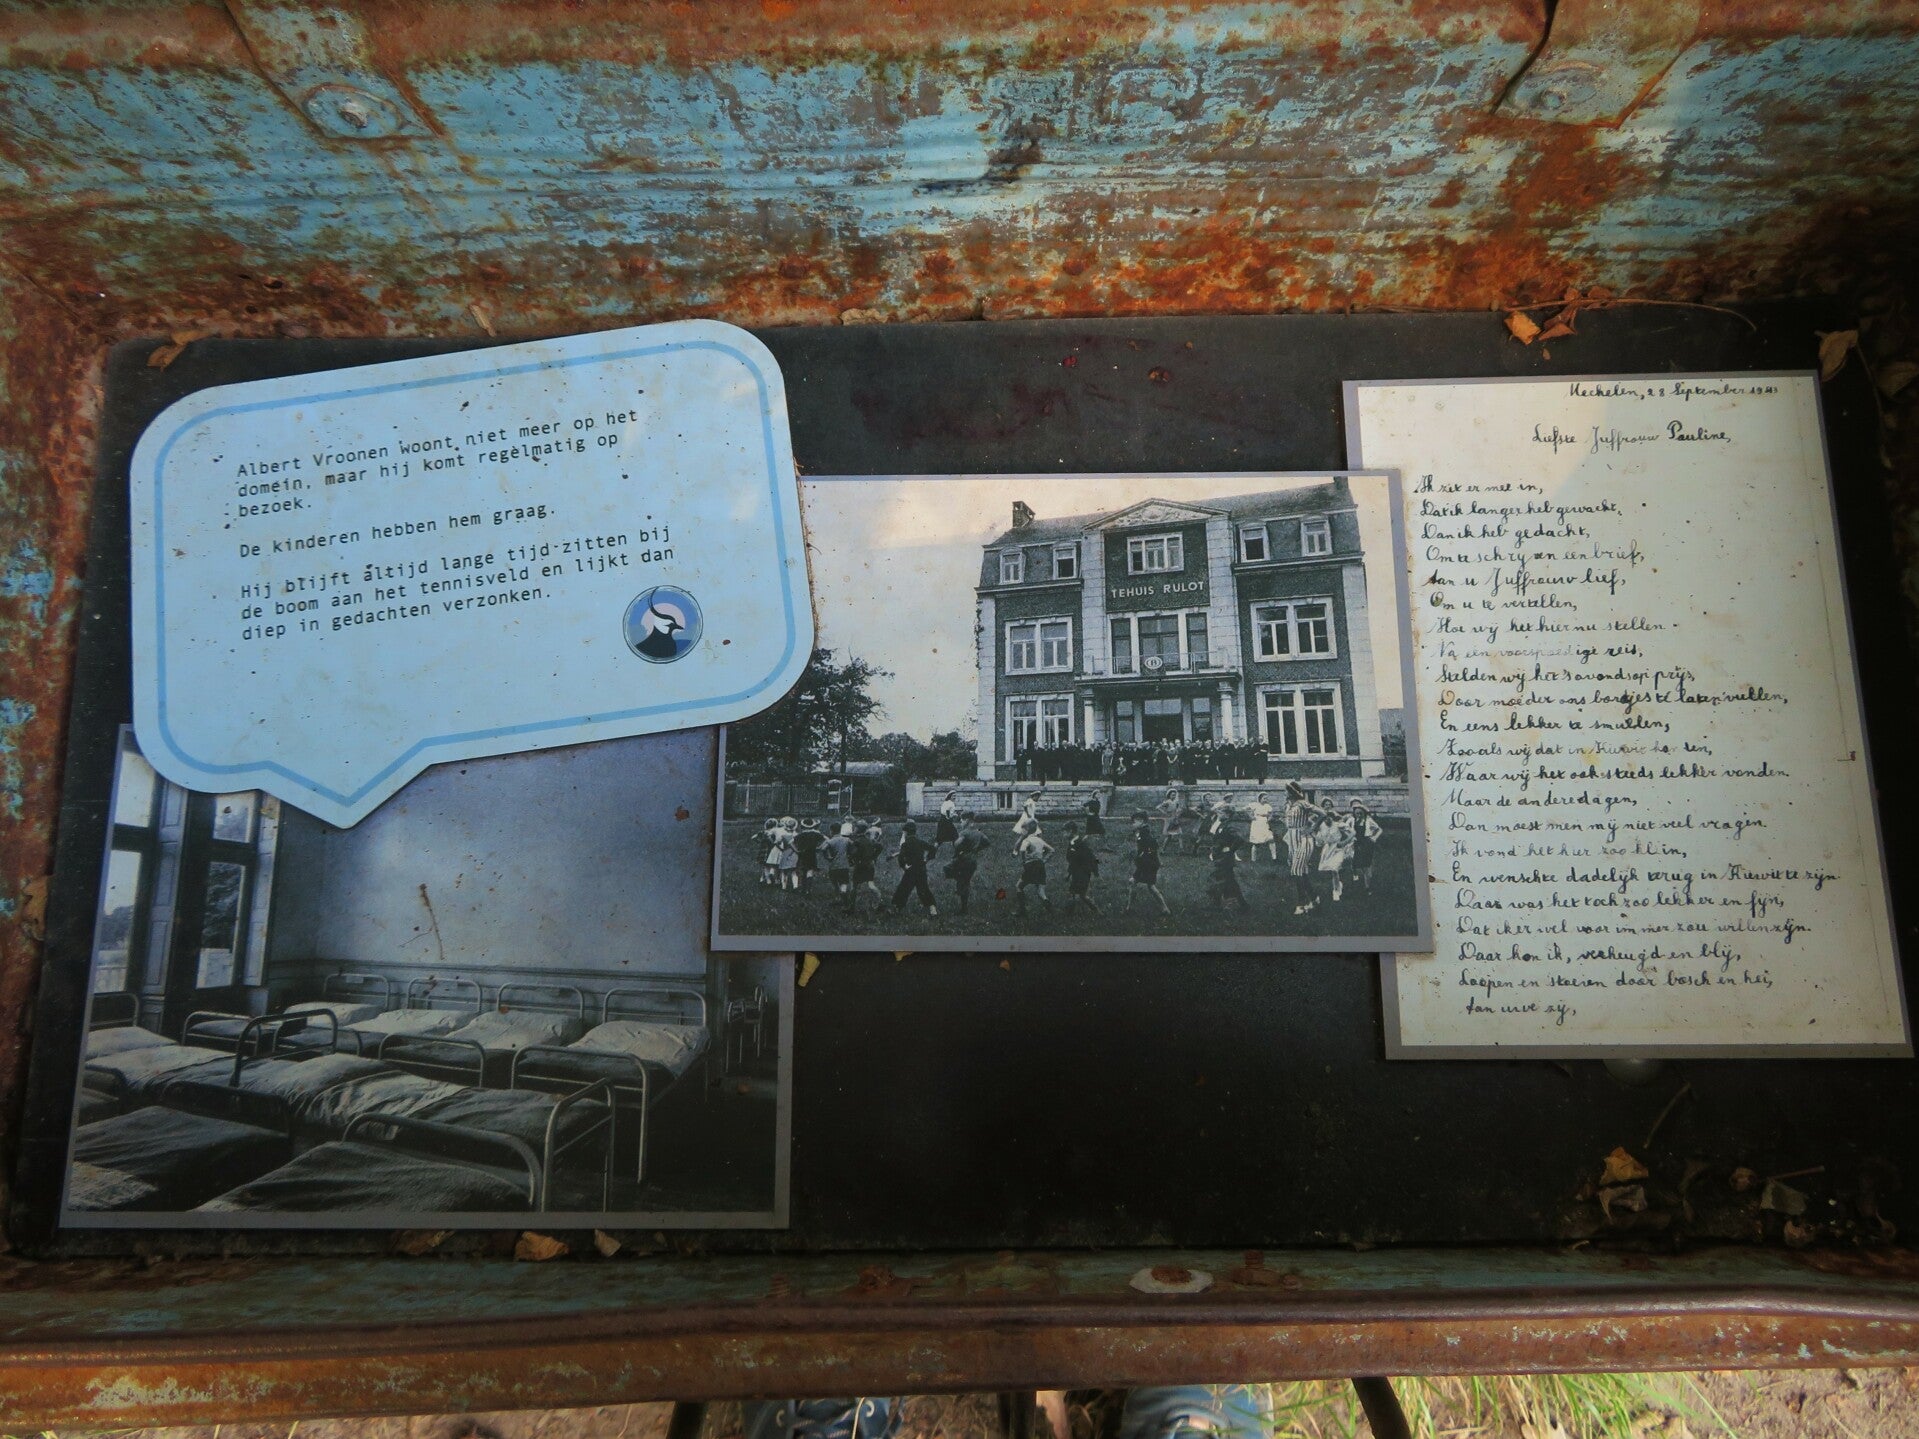 Albert Vroonen woont niet meer op het
domein, maar hij komt regelmatig op
bezoek.
De kinderen hebben hem graag.
Hij blijft altijd lange tijd zitten bij
de boom aan het tennisveld en lijkt dan
diep in gedachten verzonken.
TEHUIS RULOT
Mechelen, 28 September
Liefste Juffrouw Pauline,
Ik zit er mee in,
Dat ik langer heb gewacht,
Dan ik heb gedacht,
Om te schryven een brief,
Aan u Juffrouw lief,
Om u te vertellen,
Hoe wij het hier nu stellen.
Na een voorspoedige reis,
Stelden wij het 's avonds op prijs,
Door moeder ons bordjes te laten vullen,
En eens lekker te smullen,
Zooals wij dat in Kiewit konden,
Waar wij het ook steeds lekker vonden.
Maar de andere dagen,
Dan moest men mij niet veel vragen.
Ik vond het hier zoo klein,
En wenschte dadelijk terug in Kiewit te zijn.
Daar was het toch zoo lekker en fijn,
Dat ik er wel voor immer zou willen zijn.
Daar kon ik, verheugd en blij,
Loopen en stoeien door bosch en hei,
Aan uwe zij,